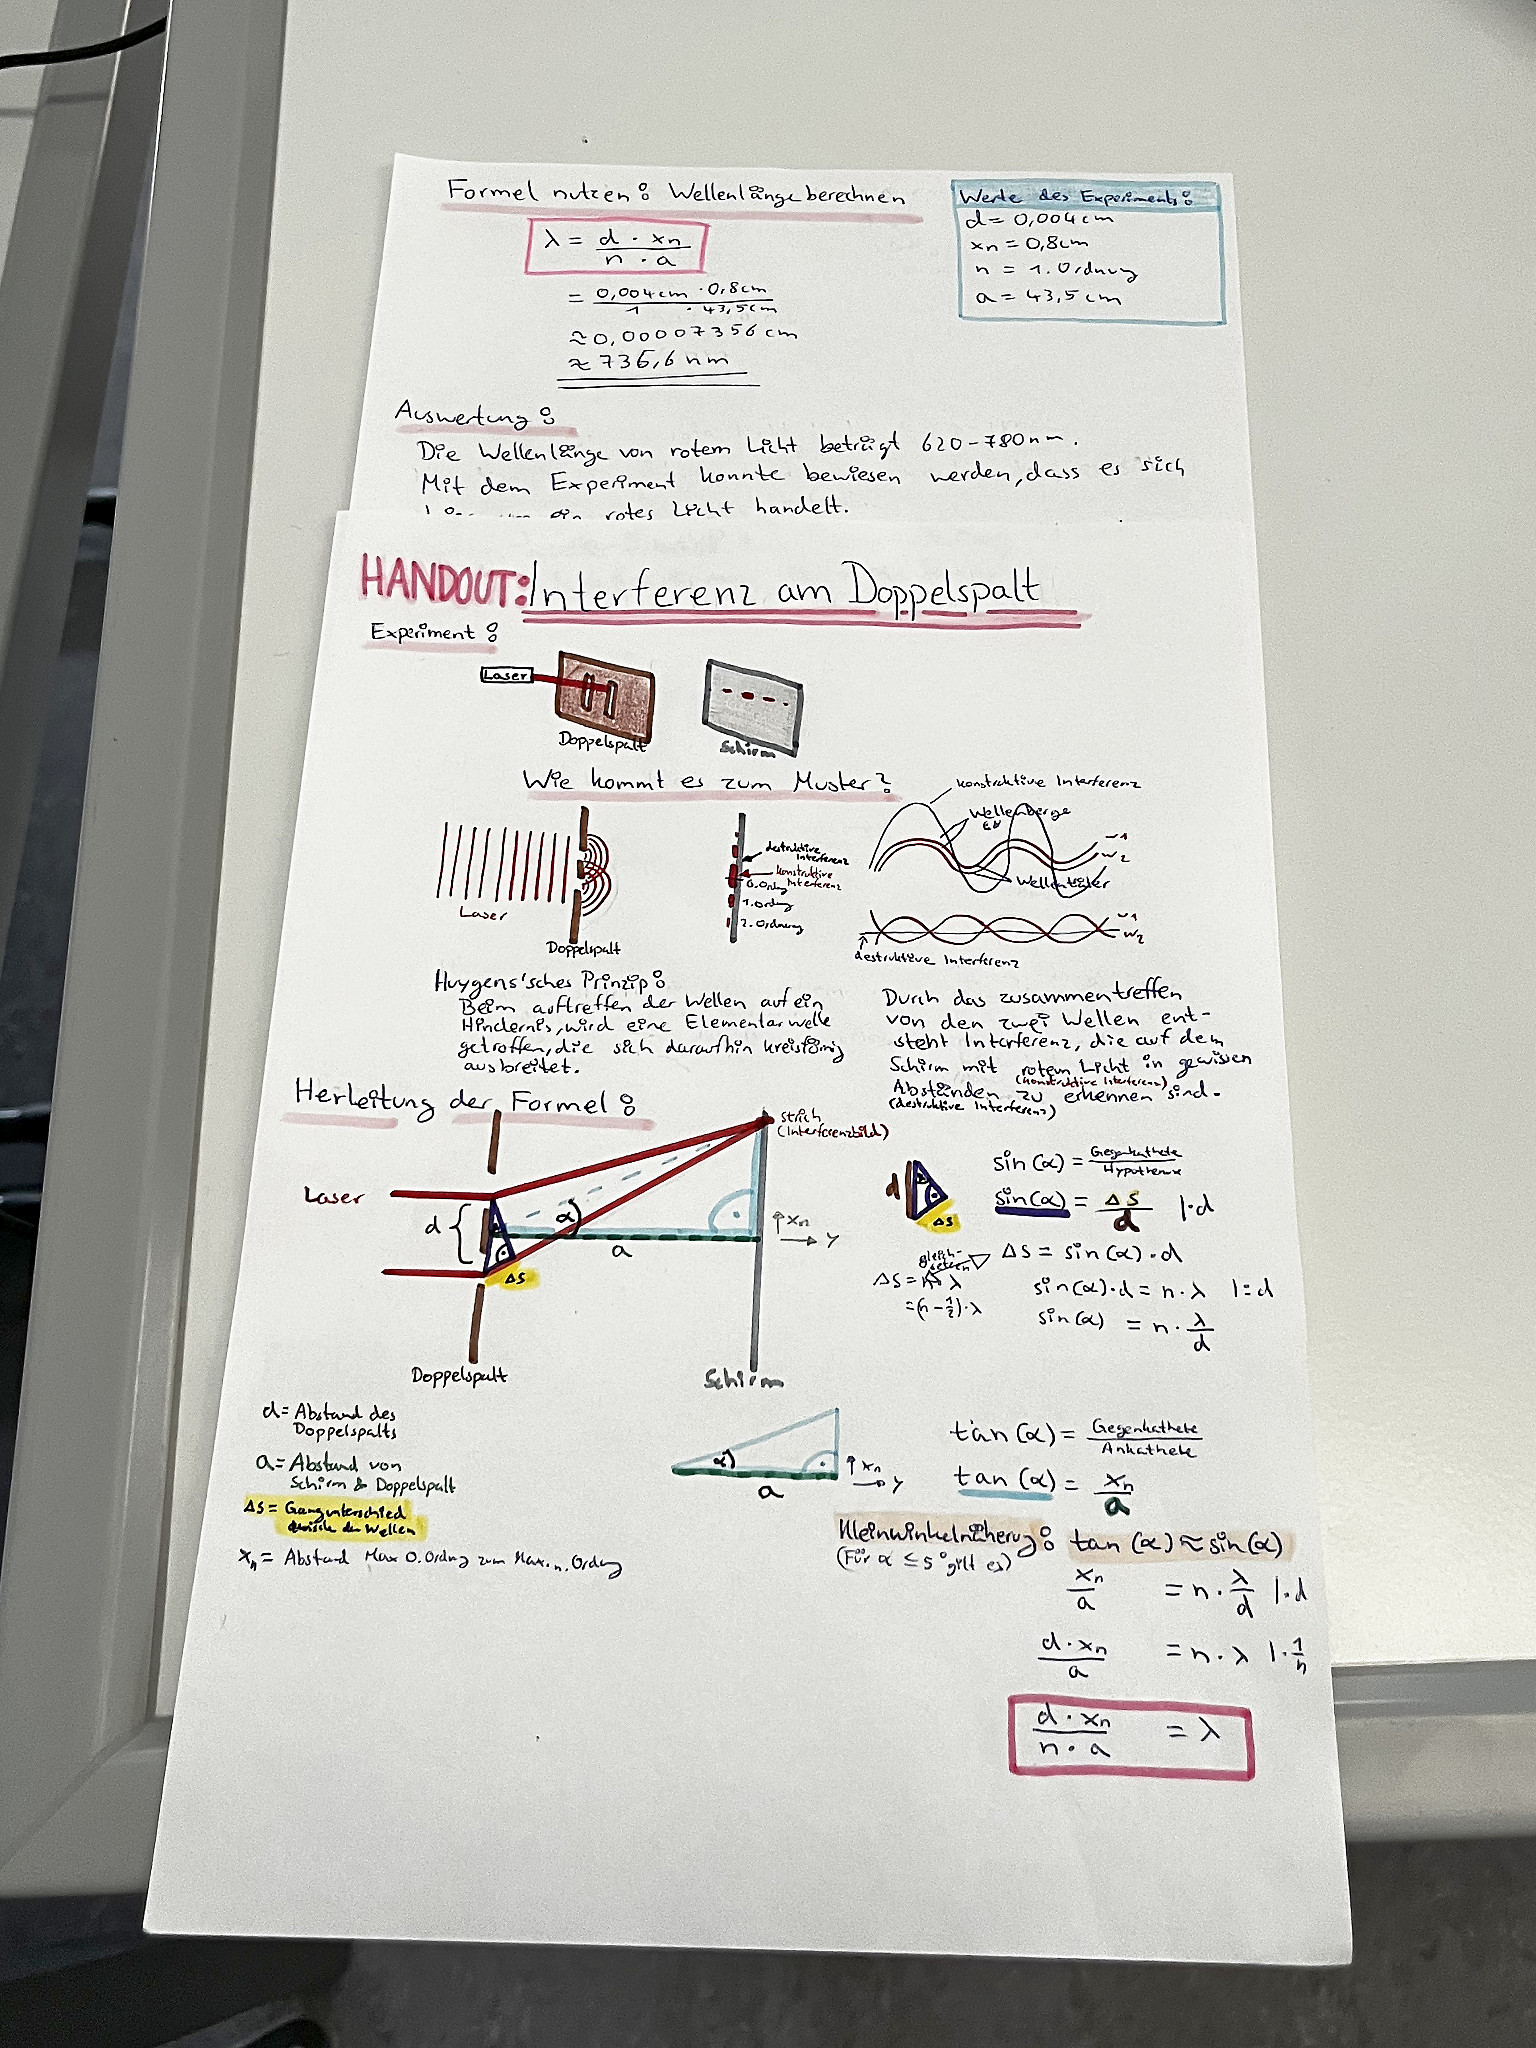 Formel nutzen: Wellenlänge berechnen
λ = d · xn / n · a
= 0,004cm · 0,8cm / 1 · 43,5cm
≈ 0,00007356cm
≈ 736,6 nm
Werte des Experiments:
d = 0,004cm
xn = 0,8cm
n = 1. Ordnung
a = 43,5cm
Auswertung:
Die Wellenlänge von rotem Licht beträgt 620-780nm.
Mit dem Experiment konnte bewiesen werden, dass es sich
ein rotes Licht handelt.
HANDOUT: Interferenz am Doppelspalt
Experiment:
Laser
Doppelspalt
Schirm
Wie kommt es zum Muster?
Laser
Doppelspalt
destruktive Interferenz
konstruktive Interferenz
0. Ordng
1. Ordng
2. Ordnung
konstruktive Interferenz
Wellenberge
w1
w2
Wellentäler
w1
w2
destruktive Interferenz
Huygens'sches Prinzip:
Beim auftreffen der Wellen auf ein
Hindernis, wird eine Elementarwelle
getroffen, die sich daraufhin kreisförmig
ausbreitet.
Durch das zusammentreffen
von den zwei Wellen ent-
steht Interferenz, die auf dem
Schirm mit rotem Licht in gewissen
(konstruktive Interferenz)
Abständen zu erkennen sind.
(destruktive Interferenz)
Herleitung der Formel:
strich
(Interferenzbild)
Laser
d
α
a
Δs
xn
y
Doppelspalt
Schirm
d
α
Δs
sin(α) = Gegenkathete / Hypothenuse
sin(α) = Δs / d |·d
gleich-
setzen
Δs = sin(α) · d
Δs = n · λ
= (n - 1/2) · λ
sin(α) · d = n · λ |:d
sin(α) = n · λ/d
d = Abstand des
Doppelspalts
a = Abstand von
Schirm & Doppelspalt
Δs = Gangunterschied
der Wellen
xn = Abstand Max 0. Ordng zum Max. n. Ordng
α
a
xn
y
tan(α) = Gegenkathete / Ankathete
tan(α) = xn / a
Kleinwinkelnäherung: tan(α) ≈ sin(α)
(Für α ≤ 5° gilt es)
xn / a = n · λ/d |·d
d · xn / a = n · λ |· 1/n
d · xn / n · a = λ